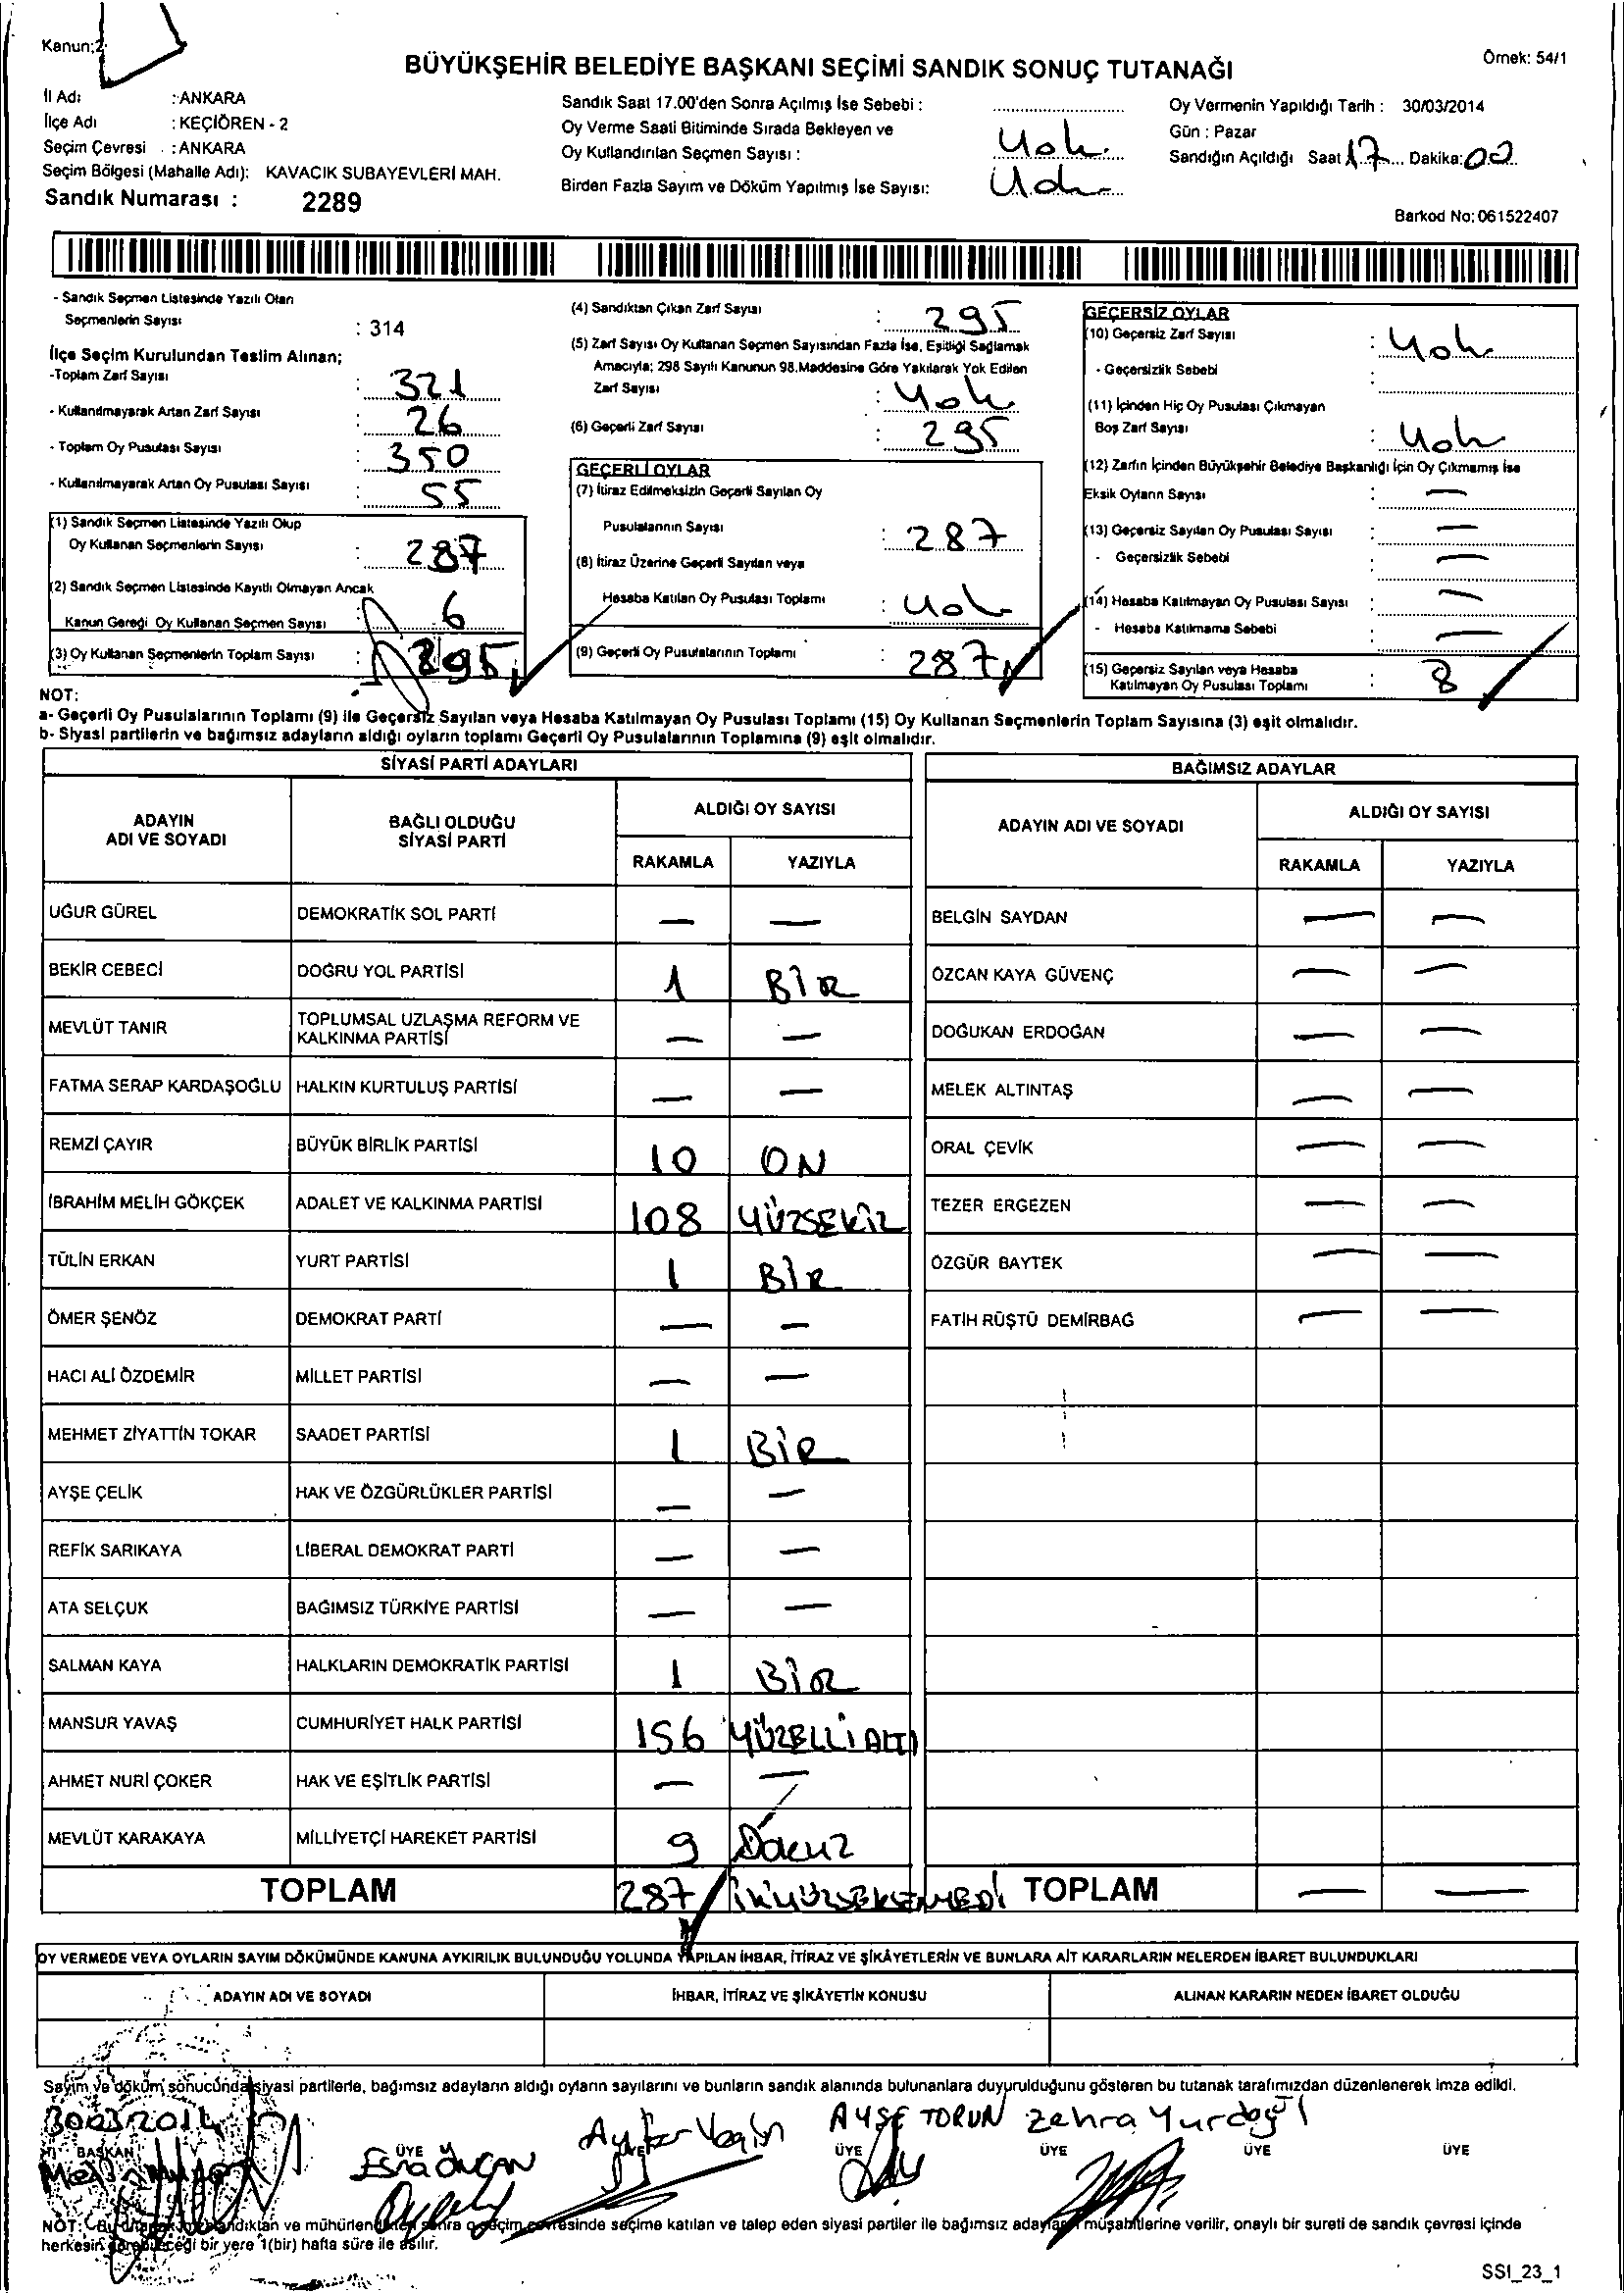 Kanun:2
Örnek: 54/1
BÜYÜKŞEHİR BELEDİYE BAŞKANI SEÇİMİ SANDIK SONUÇ TUTANAĞI
İl Adı : ANKARA
İlçe Adı : KEÇİÖREN - 2
Seçim Çevresi : ANKARA
Seçim Bölgesi (Mahalle Adı): KAVACIK SUBAYEVLERİ MAH.
Sandık Numarası : 2289
Sandık Saat 17.00'den Sonra Açılmış İse Sebebi :
Oy Verme Saati Bitiminde Sırada Bekleyen ve
Oy Kullandırılan Seçmen Sayısı : Yok
Birden Fazla Sayım ve Döküm Yapılmış İse Sayısı: Yok
Oy Vermenin Yapıldığı Tarih : 30/03/2014
Gün : Pazar
Sandığın Açıldığı Saat 17 Dakika: 00
Barkod No: 061522407
- Sandık Seçmen Listesinde Yazılı Olan
Seçmenlerin Sayısı : 314
İlçe Seçim Kurulundan Teslim Alınan;
-Toplam Zarf Sayısı : 321
- Kullanılmayarak Artan Zarf Sayısı : 26
- Toplam Oy Pusulası Sayısı : 350
- Kullanılmayarak Artan Oy Pusulası Sayısı : 55
(1) Sandık Seçmen Listesinde Yazılı Olup
Oy Kullanan Seçmenlerin Sayısı : 287
(2) Sandık Seçmen Listesinde Kayıtlı Olmayan Ancak
Kanun Gereği Oy Kullanan Seçmen Sayısı : 6
(3) Oy Kullanan Seçmenlerin Toplam Sayısı : 295
(4) Sandıktan Çıkan Zarf Sayısı : 295
(5) Zarf Sayısı Oy Kullanan Seçmen Sayısından Fazla İse, Eşitliği Sağlamak
Amacıyla; 298 Sayılı Kanunun 98.Maddesine Göre Yakılarak Yok Edilen
Zarf Sayısı : Yok
(6) Geçerli Zarf Sayısı : 295
GEÇERLİ OYLAR
(7) İtiraz Edilmeksizin Geçerli Sayılan Oy
Pusulalarının Sayısı : 287
(8) İtiraz Üzerine Geçerli Sayılan veya
Hesaba Katılan Oy Pusulası Toplamı : Yok
(9) Geçerli Oy Pusulalarının Toplamı : 287
GEÇERSİZ OYLAR
(10) Geçersiz Zarf Sayısı : Yok
- Geçersizlik Sebebi :
(11) İçinden Hiç Oy Pusulası Çıkmayan
Boş Zarf Sayısı : Yok
(12) Zarfın İçinden Büyükşehir Belediye Başkanlığı İçin Oy Çıkmamış İse
Eksik Oyların Sayısı : —
(13) Geçersiz Sayılan Oy Pusulası Sayısı : —
- Geçersizlik Sebebi : —
(14) Hesaba Katılmayan Oy Pusulası Sayısı : —
- Hesaba Katılmama Sebebi : —
(15) Geçersiz Sayılan veya Hesaba
Katılmayan Oy Pusulası Toplamı : 8
NOT:
a- Geçerli Oy Pusulalarının Toplamı (9) ile Geçersiz Sayılan veya Hesaba Katılmayan Oy Pusulası Toplamı (15) Oy Kullanan Seçmenlerin Toplam Sayısına (3) eşit olmalıdır.
b- Siyasi partilerin ve bağımsız adayların aldığı oyların toplamı Geçerli Oy Pusulalarının Toplamına (9) eşit olmalıdır.
SİYASİ PARTİ ADAYLARI
ADAYIN ADI VE SOYADI BAĞLI OLDUĞU SİYASİ PARTİ ALDIĞI OY SAYISI
RAKAMLA YAZIYLA
UĞUR GÜREL DEMOKRATİK SOL PARTİ — —
BEKİR CEBECİ DOĞRU YOL PARTİSİ 1 BİR
MEVLÜT TANIR TOPLUMSAL UZLAŞMA REFORM VE KALKINMA PARTİSİ — —
FATMA SERAP KARDAŞOĞLU HALKIN KURTULUŞ PARTİSİ — —
REMZİ ÇAYIR BÜYÜK BİRLİK PARTİSİ 10 ON
İBRAHİM MELİH GÖKÇEK ADALET VE KALKINMA PARTİSİ 108 YÜZSEKİZ
TÜLİN ERKAN YURT PARTİSİ 1 BİR
ÖMER ŞENÖZ DEMOKRAT PARTİ — —
HACI ALİ ÖZDEMİR MİLLET PARTİSİ — —
MEHMET ZİYATTİN TOKAR SAADET PARTİSİ 1 BİR
AYŞE ÇELİK HAK VE ÖZGÜRLÜKLER PARTİSİ — —
REFİK SARIKAYA LİBERAL DEMOKRAT PARTİ — —
ATA SELÇUK BAĞIMSIZ TÜRKİYE PARTİSİ — —
SALMAN KAYA HALKLARIN DEMOKRATİK PARTİSİ 1 BİR
MANSUR YAVAŞ CUMHURİYET HALK PARTİSİ 156 YÜZELLİALTI
AHMET NURİ ÇOKER HAK VE EŞİTLİK PARTİSİ — —
MEVLÜT KARAKAYA MİLLİYETÇİ HAREKET PARTİSİ 9 DOKUZ
TOPLAM 287 İKİYÜZSEKSENYEDİ
BAĞIMSIZ ADAYLAR
ADAYIN ADI VE SOYADI ALDIĞI OY SAYISI
RAKAMLA YAZIYLA
BELGİN SAYDAN — —
ÖZCAN KAYA GÜVENÇ — —
DOĞUKAN ERDOĞAN — —
MELEK ALTINTAŞ — —
ORAL ÇEVİK — —
TEZER ERGEZEN — —
ÖZGÜR BAYTEK — —
FATİH RÜŞTÜ DEMİRBAĞ — —
TOPLAM — —
OY VERMEDE VEYA OYLARIN SAYIM DÖKÜMÜNDE KANUNA AYKIRILIK BULUNDUĞU YOLUNDA YAPILAN İHBAR, İTİRAZ VE ŞİKÂYETLERİN VE BUNLARA AİT KARARLARIN NELERDEN İBARET BULUNDUKLARI
ADAYIN ADI VE SOYADI İHBAR, İTİRAZ VE ŞİKÂYETİN KONUSU ALINAN KARARIN NEDEN İBARET OLDUĞU
Sayım ve döküm sonucunda siyasi partilerle, bağımsız adayların aldığı oyların sayılarını ve bunların sandık alanında bulunanlara duyurulduğunu gösteren bu tutanak tarafımızdan düzenlenerek imza edildi.
30032014 AYŞE TORUN Zehra Yurdagül
BAŞKAN ÜYE ÜYE ÜYE ÜYE ÜYE ÜYE
Esra
NOT: Bu tutanak ve mühürlendikten sonra o seçim çevresinde seçime katılan ve talep eden siyasi partiler ile bağımsız adayların müşahitlerine verilir, onaylı bir sureti de sandık çevresi içinde
herkesin görebileceği bir yere 1(bir) hafta süre ile asılır.
SSI_23_1